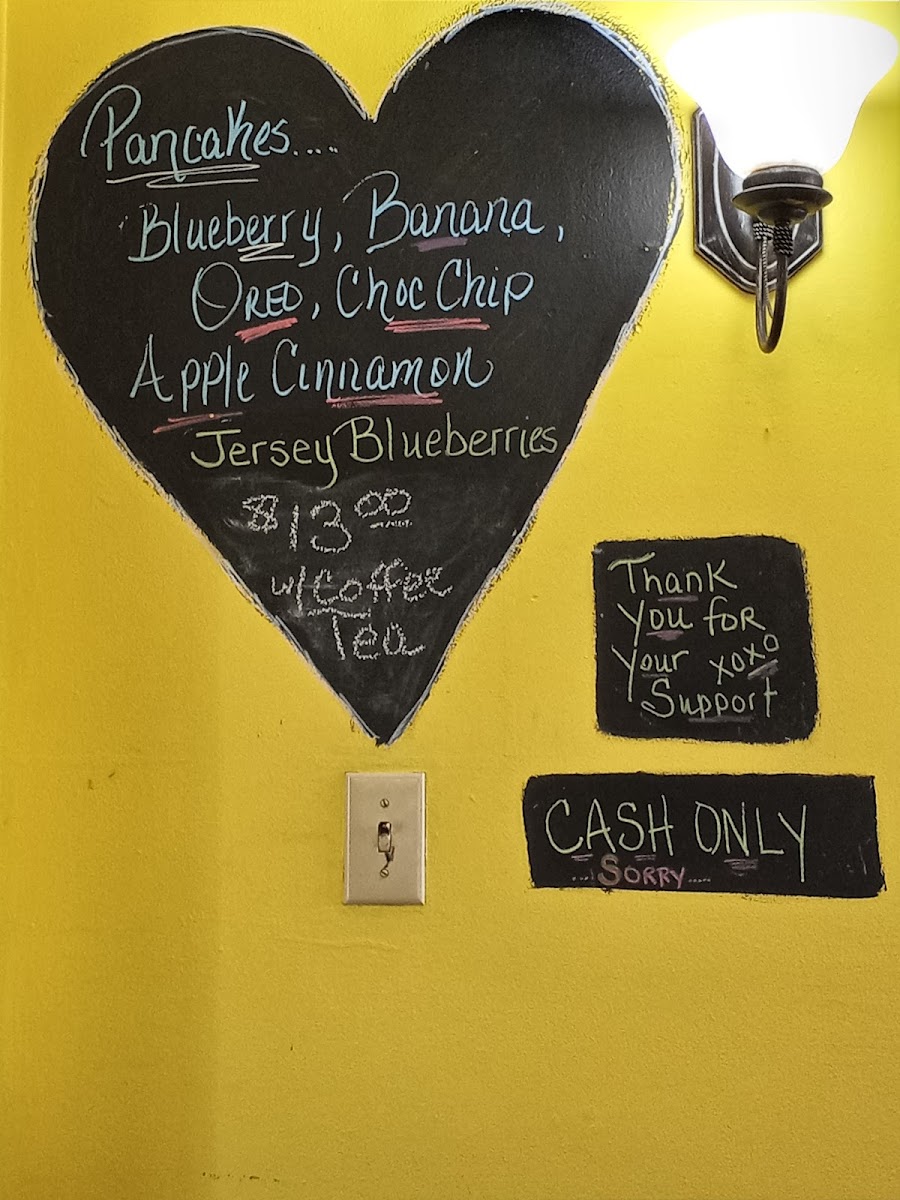 Pancakes....
Blueberry, Banana,
Oreo, Choc Chip
Apple Cinnamon
Jersey Blueberries
$13.00
w/ Coffee
Tea
Thank
You for
your xoxo
Support
CASH ONLY
...Sorry....